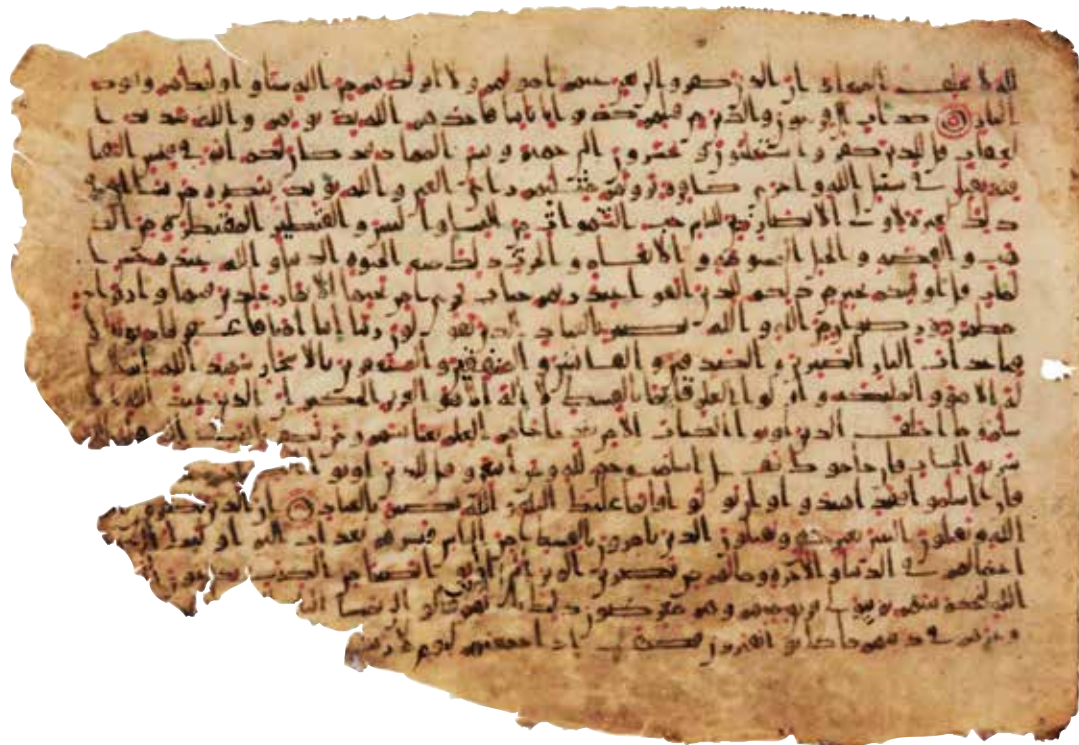 لله لا يخلف الميعاد ان الذين كفروا لن تغني عنهم امولهم ولا اولدهم من الله شيا واوليك هم وقود
النار كداب ال فرعون والذين من قبلهم كذبوا بايتنا فاخذهم الله بذنوبهم والله شديد ا
لعقاب قل للذين كفروا ستغلبون وتحشرون الى جهنم وبيس المهاد قد كان لكم اية في فيتين التقتا
فية تقتل في سبيل الله واخرى كافرة يرونهم مثليهم راي العين والله يويد بنصره من يشا ان في
ذلك لعبرة لاولي الابصار زين للناس حب الشهوات من النسا والبنين والقنطير المقنطرة من الذ
هب والفضة والخيل المسومة والانعام والحرث ذلك متع الحيوة الدنيا والله عنده حسن ا
لماب قل اونبيكم بخير من ذلكم للذين اتقوا عند ربهم جنت تجري من تحتها الانهر خلدين فيها وازوج
مطهرة ورضوان من الله والله بصير بالعباد الذين يقولون ربنا اننا امنا فاغفر لنا ذنوبنا و
قنا عذاب النار الصبرين والصدقين والقنتين والمنفقين والمستغفرين بالاسحار شهد الله انه لا ا
له الا هو والمليكة واولوا العلم قايما بالقسط لا اله الا هو العزيز الحكيم ان الدين عند الله الا
سلم وما اختلف الذين اوتوا الكتب الا من بعد ما جاهم العلم بغيا بينهم ومن يكفر بايت الله فان الله
سريع الحساب فان حاجوك فقل اسلمت وجهي لله ومن اتبعن وقل للذين اوتوا ا
فان اسلموا فقد اهتدوا وان تولوا فانما عليك البلغ والله بصير بالعباد ان الذين يكفرون
الله ويقتلون النبين بغير حق ويقتلون الذين يامرون بالقسط من الناس فبشرهم بعذاب اليم اوليك
اعملهم في الدنيا والاخرة وما لهم من نصرين الم تر الى الذين اوتوا نصيبا من الكتب يدعون
الله ليحكم بينهم ثم يتولى فريق منهم وهم معرضون ذلك بانهم قالوا لن تمسنا ال
وغرهم في دينهم ما كانوا يفترون فكيف اذا جمعنهم ليوم لا ريب